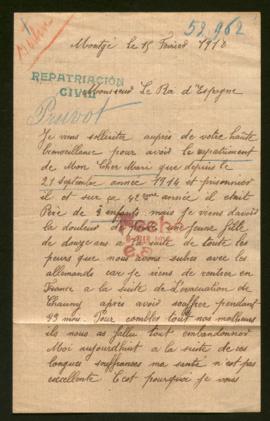 52.962
Montgé le 15 Fevrier 1918
REPATRIACIÓN
CIVIL
Monsieur Le Roi d'Espagne
Pruvot
Je vous sollicite auprès de votre haute
bienveillance pour avoir le rapatriement
de Mon Cher Mari que depuis le
21 Septembre année 1914 et prisonnier
il et sur ça 42eme année il etait
Père de 3 enfants mais je viens d'avoir
la douleur une jeune fille
de douze ans a la suite de toute les
peurs que nous avons subies avec les
allemands car je viens de rentrer en
France a la suite de L'evacuation de
Chauny après avoir souffert pendant
43 mois. Pour combles tout nos malheurs
il nous as fallu tout embandonner
Moi aujourd'hui a la suite de ces
longues souffrances ma santé n'est pas
excellente C'est pourquoi je vous